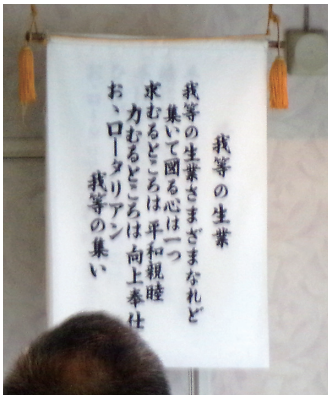 我等の生業
我等の生業さまざまなれど
集いて図る心は一つ
求むるところは平和親睦
力むるところは向上奉仕
おゝロータリアン
我等の集い